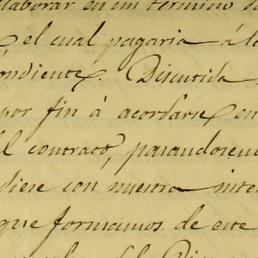 elaborar en un termino
, el cual pagaria á lo
ondiente. Discutida
por fin á acordarse en
el contrato, pasandose
diese con nuestra inte
que formamos de este